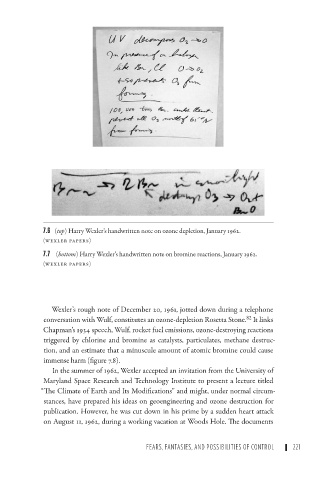 UV decomposes O3 → O
In presence of a halogen
like Br, Cl O → O2
also prevents O3 from
forming.
100,000 tons Br could
prevent all O3 north of 65°N
from forming
Br2 → 2 Br in sunlight
destroys O3 → O2 +
BrO
7.6 (top) Harry Wexler's handwritten note on ozone depletion, January 1962.
(WEXLER PAPERS)
7.7 (bottom) Harry Wexler's handwritten note on bromine reactions, January 1962.
(WEXLER PAPERS)
Wexler's rough note of December 20, 1961, jotted down during a telephone
conversation with Wulf, constitutes an ozone-depletion Rosetta Stone. It links
Chapman's 1934 speech, Wulf, rocket fuel emissions, ozone-destroying reactions
triggered by chlorine and bromine as catalysts, particulates, methane destruc-
tion, and an estimate that a minuscule amount of atomic bromine could cause
immense harm (figure 7.8).
In the summer of 1962, Wexler accepted an invitation from the University of
Maryland Space Research and Technology Institute to present a lecture titled
"The Climate of Earth and Its Modifications" and might, under normal circum-
stances, have prepared his ideas on geoengineering and ozone destruction for
publication. However, he was cut down in his prime by a sudden heart attack
on August 11, 1962, during a working vacation at Woods Hole. The documents
FEARS, FANTASIES, AND POSSIBILITIES OF CONTROL 221